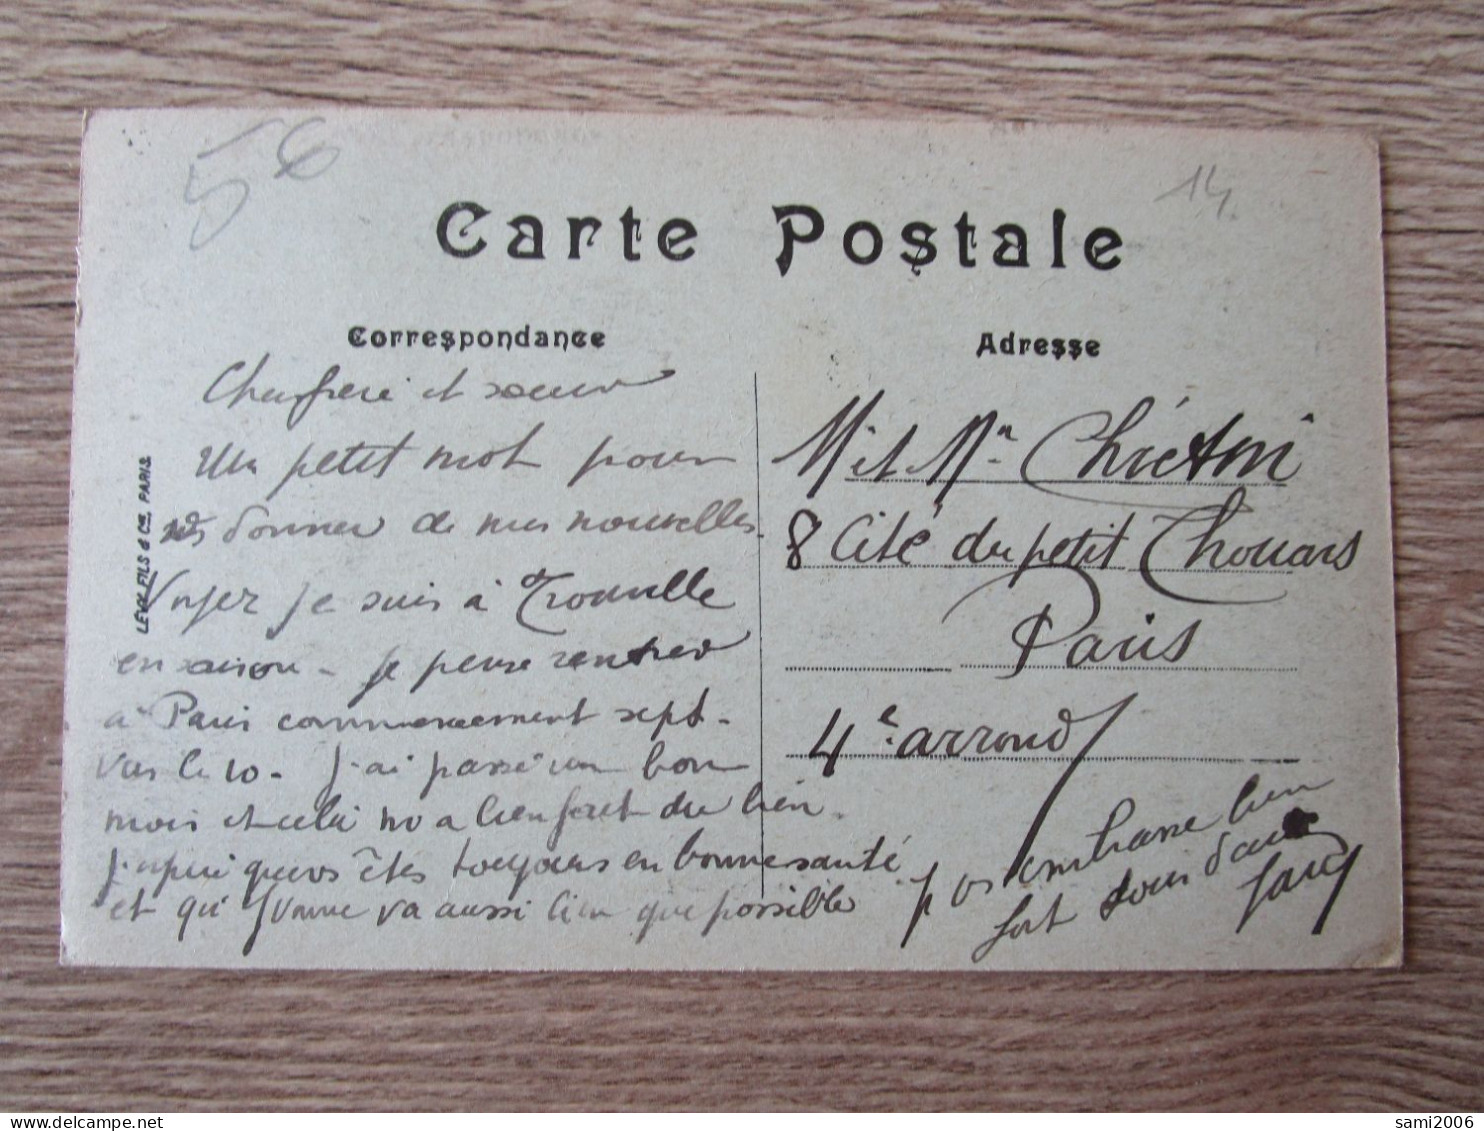 56
14
Carte Postale
Correspondance
Adresse
LÉVY FILS & Cie, PARIS
Cher frere et soeur
Un petit mot pour
vs donner de mes nouvelles.
Voyez je suis à Trouville
en saison - je pense rentrer
à Paris commencement sept.
vers le 10 - J'ai passé un bon
mois et cela m'a bien fait du bien.
J'espère que vs êtes toujours en bonne santé
et qu'Yvonne va aussi bien que possible
Mr et Mme Chrétien
8 Cité du petit Chouars
Paris
4e arrond
je vs embrasse bien
fort tous deux
sami2006